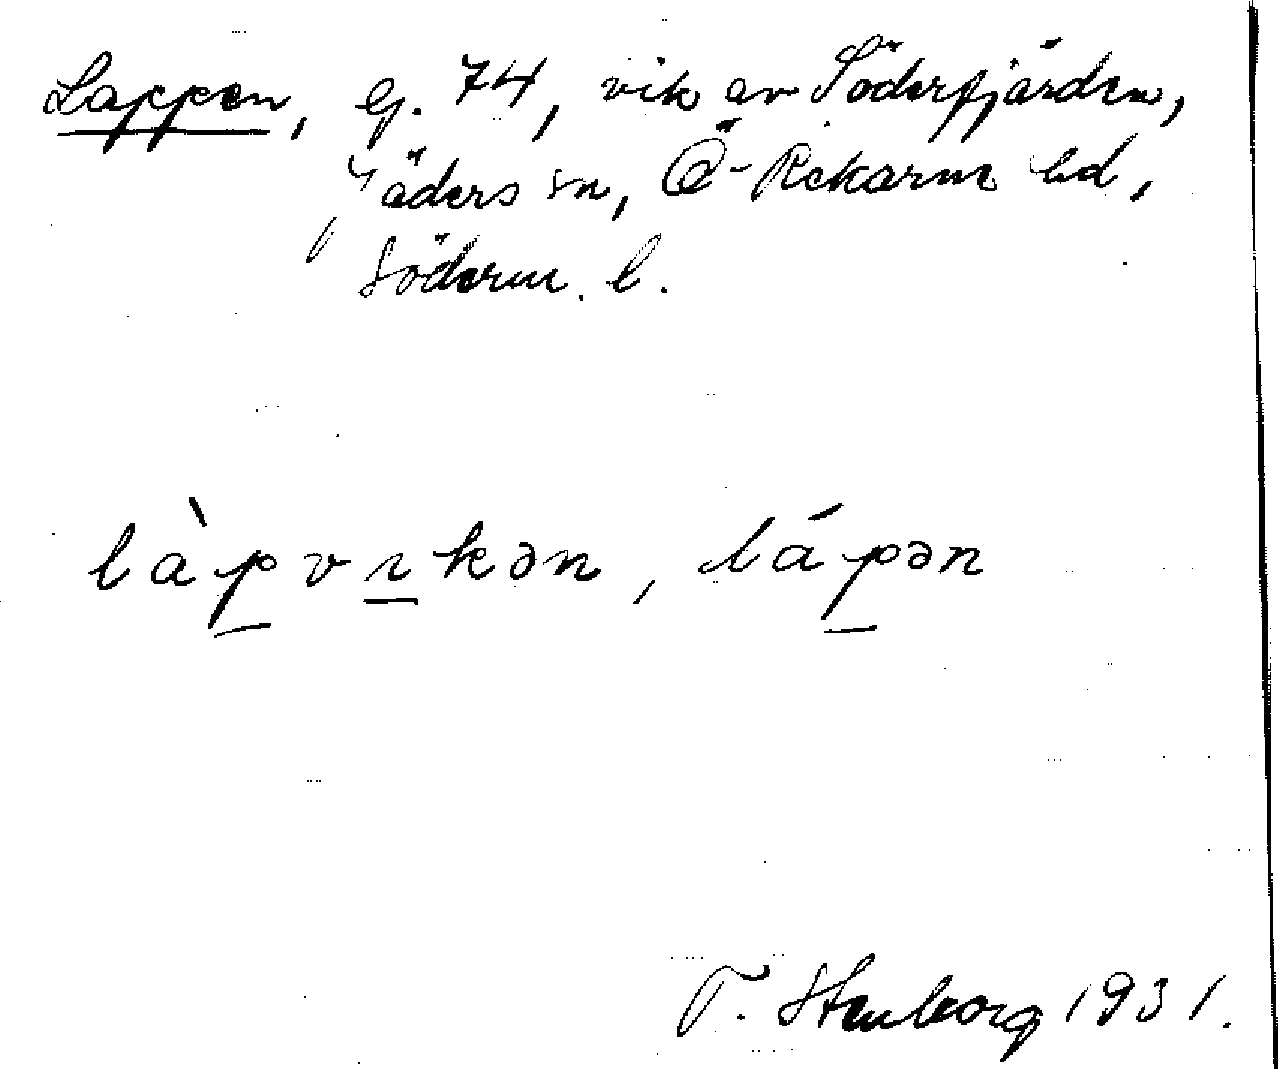 Lappen, ej. 74, vik av Söderfjärden,
Jäders sn, Ö-Rekarne hd,
Söderm. l.
làpvıkən, lápən
T. Stenborg 1931.